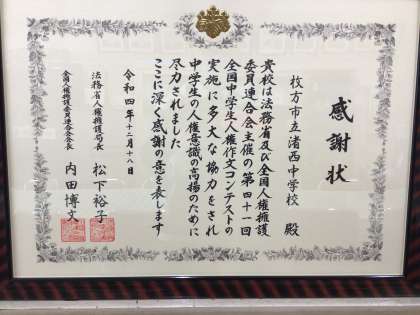 感謝状
枚方市立渚西中学校 殿
貴校は法務省及び全国人権擁護
委員連合会主催の第四十一回
全国中学生人権作文コンテストの
実施に多大な協力をされ
中学生の人権意識の高揚のために
尽力されました
ここに深く感謝の意を表します
令和四年十二月十八日
法務省人権擁護局長 松下裕子
全国人権擁護委員連合会会長 内田博文